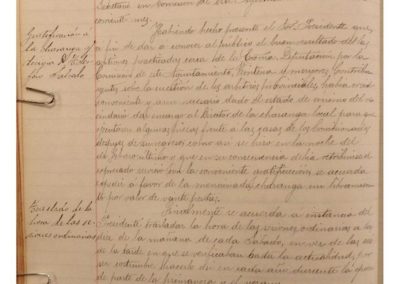 corriente mes.
Gratificación á
la charanga y
Habiendo hecho presente el Sr. Presidente que,
á fin de dar á conocer al público el buen resultado de las
gestiones practicadas cerca de la Excma. Diputación por la
Comisión de este Ayuntamiento, y mayores contribu
yentes sobre la cuestión de los arbitrios provinciales, había creido
conveniente y aun necesario dado el estado de animo del ve
cindario dar encargo al Director de la charanga local para que
ejecutara algunas piezas frente á las casas de los
despues de como asi se hizo en la noche del
y que en su consecuencia debia retribuirse el
expresado servicio con la conveniente gratificación, se acuerda
expedir á favor de la mencionada charanga un libramiento
por valor de veinte pesetas.
Traslación de la
hora de las se
siones ordinarias
Finalmente se acuerda á instancia del
Presidente trasladar la hora de las sesiones ordinarias á las
diez de la mañana de cada Sábado, en vez de las seis
de la tarde en que se verificaban hasta la actualidad, por
ser costumbre hacerlo en cada año durante la época
de parte de la primavera y el verano.